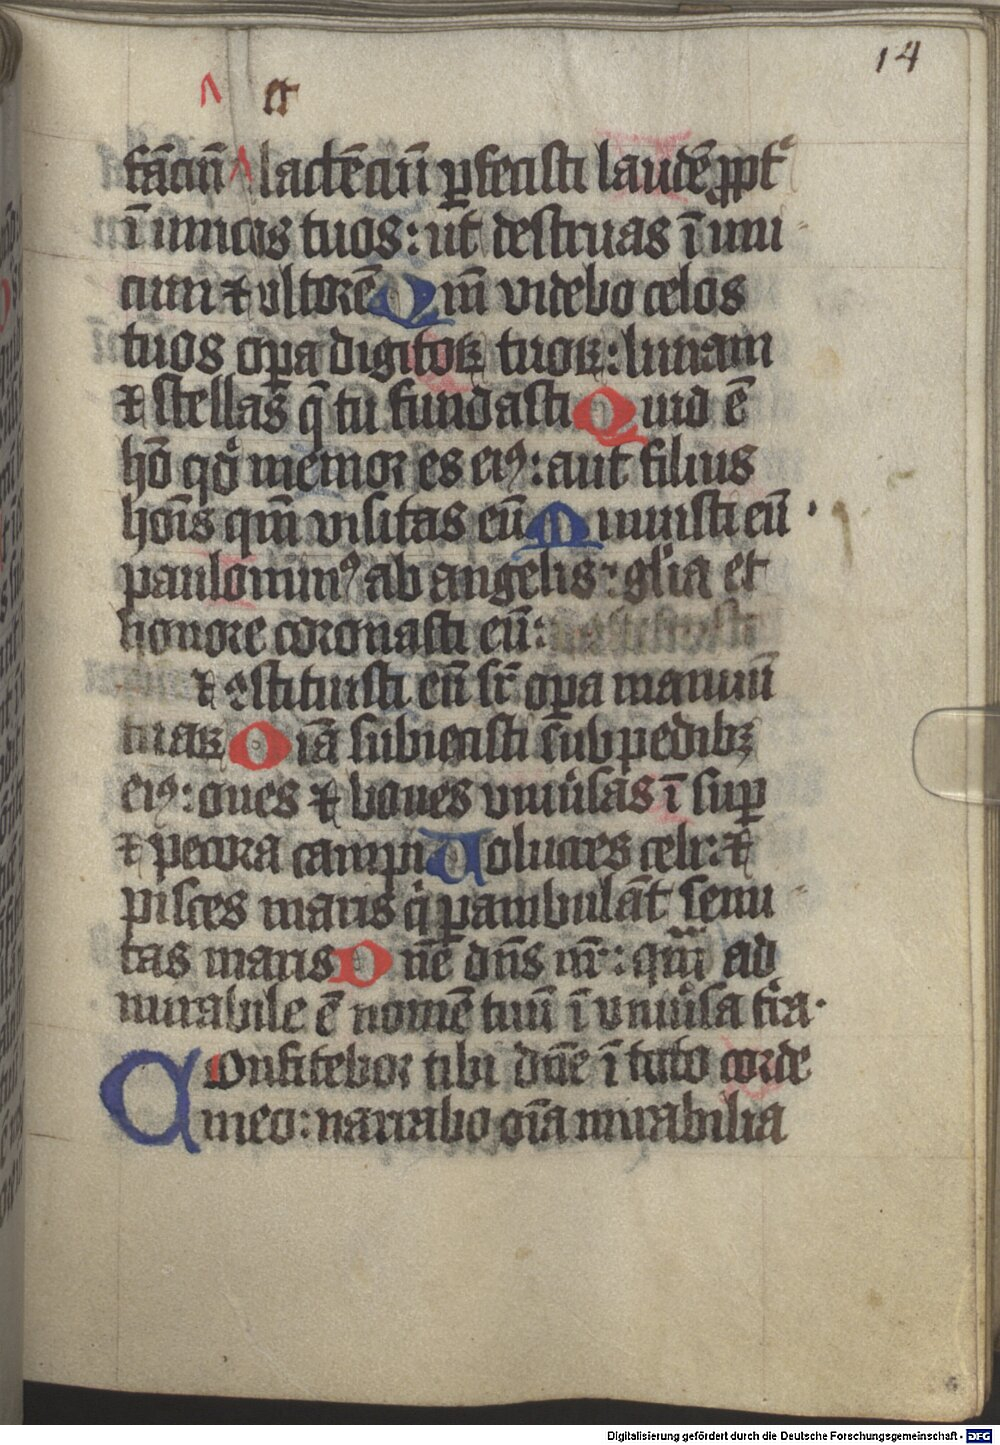 14
et
fãciũ lactẽciũ ꝑfecisti laudẽ ꝓpt̉
ĩ imicos tuos: ut destruas ĩ imi
cum ⁊ ultorẽ Qm̃ videbo celos
tuos oꝑa digitoꝝ tuoꝝ: lunam
⁊ stellas q̃ tu fundasti Quid ẽ
hõ qđ memor es eiꝰ: aut filius
hoı̃s qm̃ visitas eũ Minuisti eũ
paulominꝰ ab angelis: gľia et
honore coronasti eũ:
⁊ ꝯstituisti eũ sr̃ oꝑa manuũ
tuaꝝ Oı̃a subiecisti sub pedibꝫ
eiꝰ: oues ⁊ boues vniu̾sas ĩ suꝑ
⁊ pecora campi Uolucres celi: ⁊
pisces maris q̇ ꝑambulãt semi
tas maris Dñe dñs nr̃: qm̃ ad
mirabile ẽ nomẽ tuũ ĩ vniu̾sa tr̃a.
Confitebor tibi dñe ĩ toto corde
meo: narrabo oı̃a mirabilia
Digitalisierung gefördert durch die Deutsche Forschungsgemeinschaft - DFG